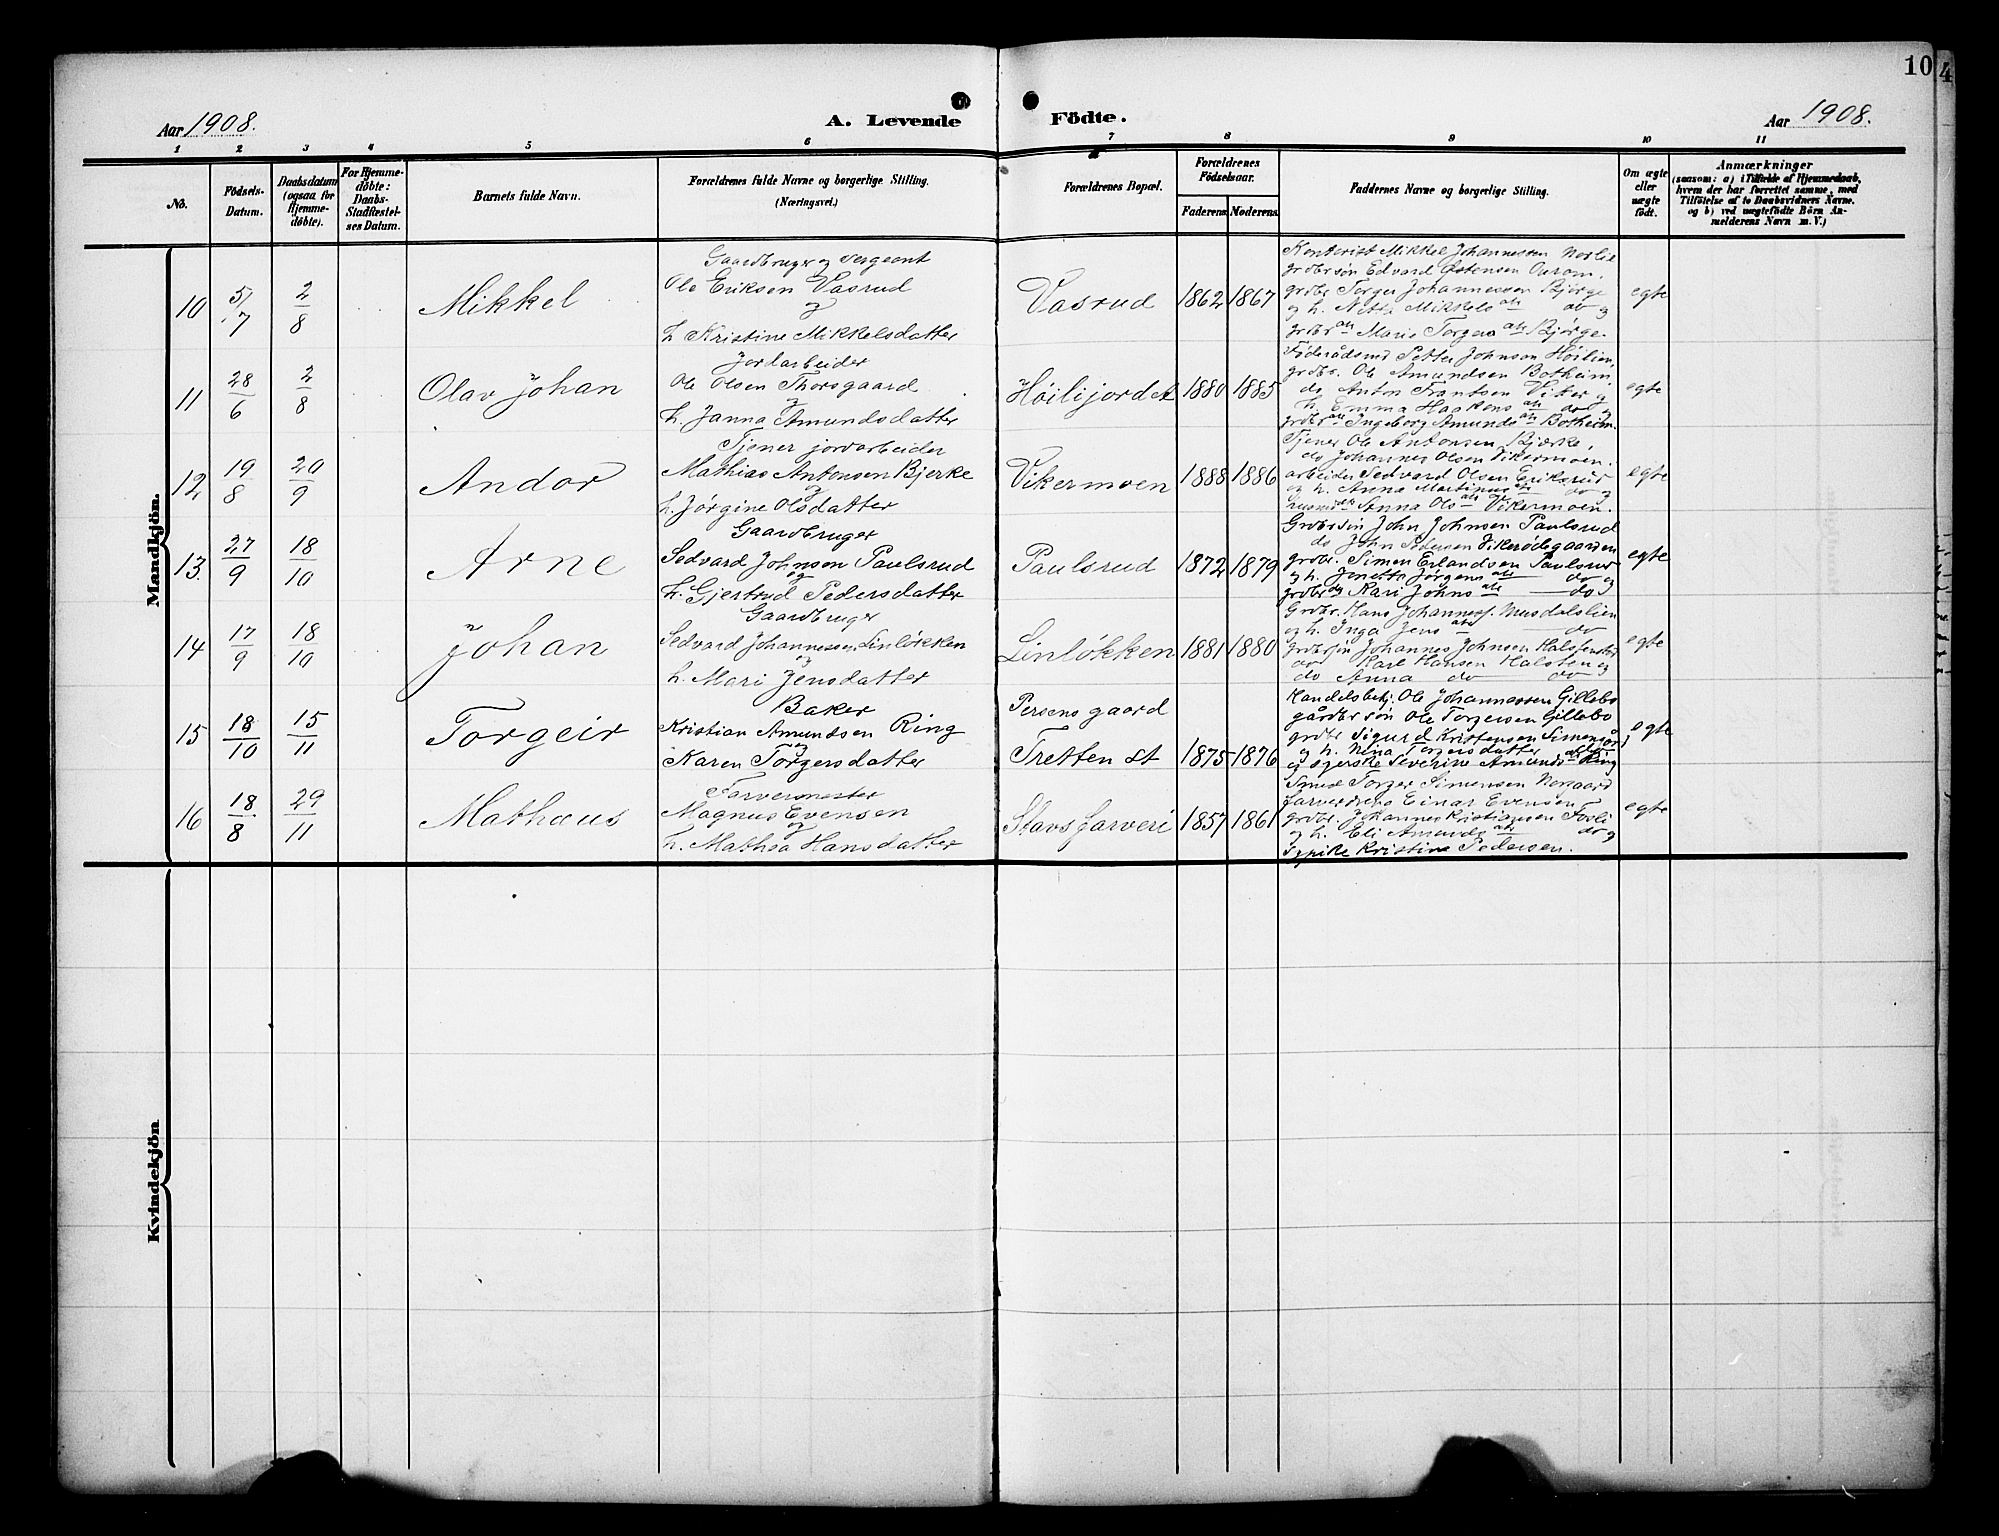 10
4
Aar 1908.
A. Levende Födte.
Aar 1908.
1 2 3 4 5 6 7 8 9 10 11
No.
Födsels-Datum.
Daabsdatum (ogsaa for Hjemme-döbte).
For Hjemme-döbte: Daabs-Stadfæstel-ses Datum.
Barnets fulde Navn.
Forældrenes fulde Navne og borgerlige Stilling.
(Næringsvei.)
Forældrenes Bopæl.
Forældrenes Födselsaar.
Faderens. Moderens.
Faddernes Navne og borgerlige Stilling.
Om ægte eller uægte födt.
Anmærkninger
(saasom: a) i Tilfælde af Hjemmedaab,
hvem der har forrettet samme, med
Tilföielse af to Daabsvidners Navne,
og b) ved uægtefödte Börn An-
melderens Navn m. V.)
Mandkjön.
10 5/7 2/8 Mikkel
Gaardbruger og Sergeant
Ole Eriksen Vasrud
og
h. Kristine Mikkelsdatter
Vasrud 1862 1867
Kontorist Mikkel Johannessen Norlie
grdbr søn Edvard Østensen
grdbr Torger Johannessen Bjørge
og h. Netta Mikkels dtr do og
grdbr dtr Marie Torgers dtr Bjørge.
egte
11 28/6 2/8 Olav Johan
Jordarbeider
Ole Olsen Thorsgaard
og
h. Janna Amundsdatter
Høilijordet 1880 1885
Føderådsmd Petter Johnsen Høilien,
grdbr. Ole Amundsen Botheim,
do Anton Frantsen Viker og
h. Emma Haakens dtr do og
grdbr dtr Ingeborg Amunds dtr Botheim.
egte
12 19/8 20/9 Andor
Tjener jordarbeider
Mathias Antonsen Bjerke
og
h. Jørgine Olsdatter
Vikermoen 1888 1886
Tjener Ole Antonsen Bjærke,
do Johannes Olsen Vikermoen.
arbeider Sedvard Olsen Eriksrud
og h. Anna Martinus dtr do og
Anna Ols dtr Vikermoen.
egte
13. 27/9 18/10 Arne
Gaardbruger
Sedvard Johnsen Paulsrud
og
h. Gjertrud Pedersdatter
Paulsrud 1872 1879
Grdbr søn John Johnsen Paulsrud
do John Pedersen Vikerødegaarden
grdbr. Simen Erlandsen Paulsrud
og h. Jonetta Jørgens dtr do og
grdbr dtr Kari Johns dtr do
egte
14 17/9 18/10 Johan
Gaardbruger
Sedvard Johannessen Linløkken
og
h. Mari Jensdatter
Linløkken 1881 1880
Grdbr. Hans Johanness. Musdalslien
og h. Inga Jens dtr do
grdbrsøn Johannes Johnsen Halstenstad
do Karl Hansen Halsten og
do Anna do do
egte
15 18/10 15/11 Torgeir
Baker
Kristian Amundsen Ring
og
Karen Torgersdatter
Persens gaard
Tretten st 1875 1876
Handelsbetj. Ole Johannessen Gillebo
gårdbr søn Ole Torgersen Gillebo
grdbr Sigurd Kristensen Simengård
og h. Nina Torgersdatter
og syerske Severine Amunds dtr Ring
egte
16 18/8 29/11 Mathæus
Farvermester
Magnus Evensen
og
h. Mathea Hansdatter
Stavs farveri 1857 1861
Smed Torger Simensen Norgaard
farverdreng Einar Evensen
grdbr. Johannes Kristiansen Fosli
og h. Eli Amunds dtr do og
Kristine Pedersen.
egte
Kvindekjön